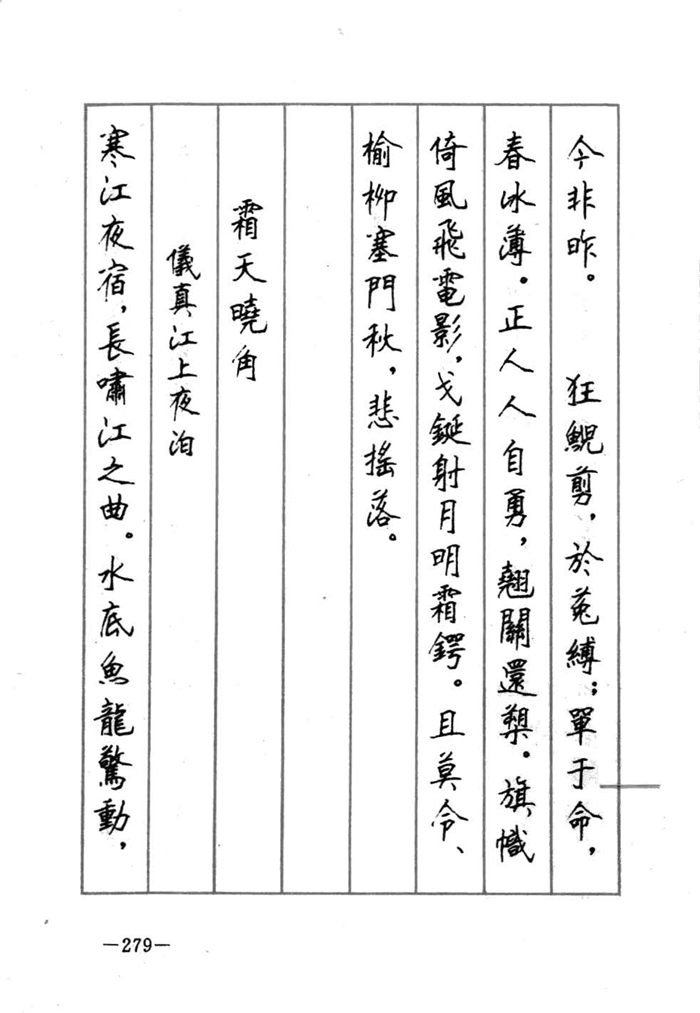 今非昨。　狂鯢剪，於菟縛；單于命，
春冰薄。正人人自勇，翹關還槊。旗幟
倚風飛電影，戈鋋射月明霜鍔。且莫令、
榆柳塞門秋，悲搖落。
霜天曉角
儀真江上夜泊
寒江夜宿，長嘯江之曲。水底魚龍驚動，
—279—